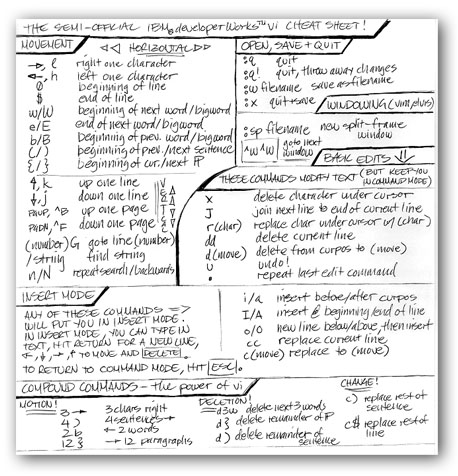 THE SEMI-OFFICIAL IBM® developerWorks™ vi CHEAT SHEET!
MOVEMENT
◁◁ HORIZONTAL ▷▷
→, l right one character
←, h left one character
0 beginning of line
$ end of line
w/W beginning of next word/bigword
e/E end of next word/bigword
b/B beginning of prev. word/bigword
(/) beginning of prev./next sentence
{/} beginning of cur./next ¶
VERTICAL
↑, k up one line
↓, j down one line
PAUP, ^B up one page
PADN, ^F down one page
(number)G goto line (number)
/string find string
n/N repeat search/backwards
OPEN, SAVE + QUIT
:q quit
:q! quit, throw away changes
:w filename save as filename
:x quit+save
WINDOWING (vim/elvis)
:sp filename new split-frame window
^W^W goto next window
BASIC EDITS
THESE COMMANDS MODIFY TEXT (BUT KEEP YOU IN COMMAND MODE)
x delete character under cursor
J join next line to end of current line
r(char) replace char under cursor w/(char)
dd delete current line
d(move) delete from curpos to (move)
u undo!
. repeat last edit command
INSERT MODE
ANY OF THESE COMMANDS =>
WILL PUT YOU IN INSERT MODE.
IN INSERT MODE, YOU CAN TYPE IN
TEXT, HIT RETURN FOR A NEW LINE,
←, ↓, →, ↑ TO MOVE AND DELETE.
TO RETURN TO COMMAND MODE, HIT ESC.
i/a insert before/after curpos
I/A insert @ beginning/end of line
o/O new line below/above, then insert
cc replace current line
c(move) replace to (move)
COMPOUND COMMANDS - the power of vi
MOTION!
3→ 3 chars right
4) 4 sentences →
2b ← 2 words
12} → 12 paragraphs
DELETION!
d3w delete next 3 words
d} delete remainder of ¶
d) delete remainder of sentence
CHANGE!
c) replace rest of sentence
c$ replace rest of line